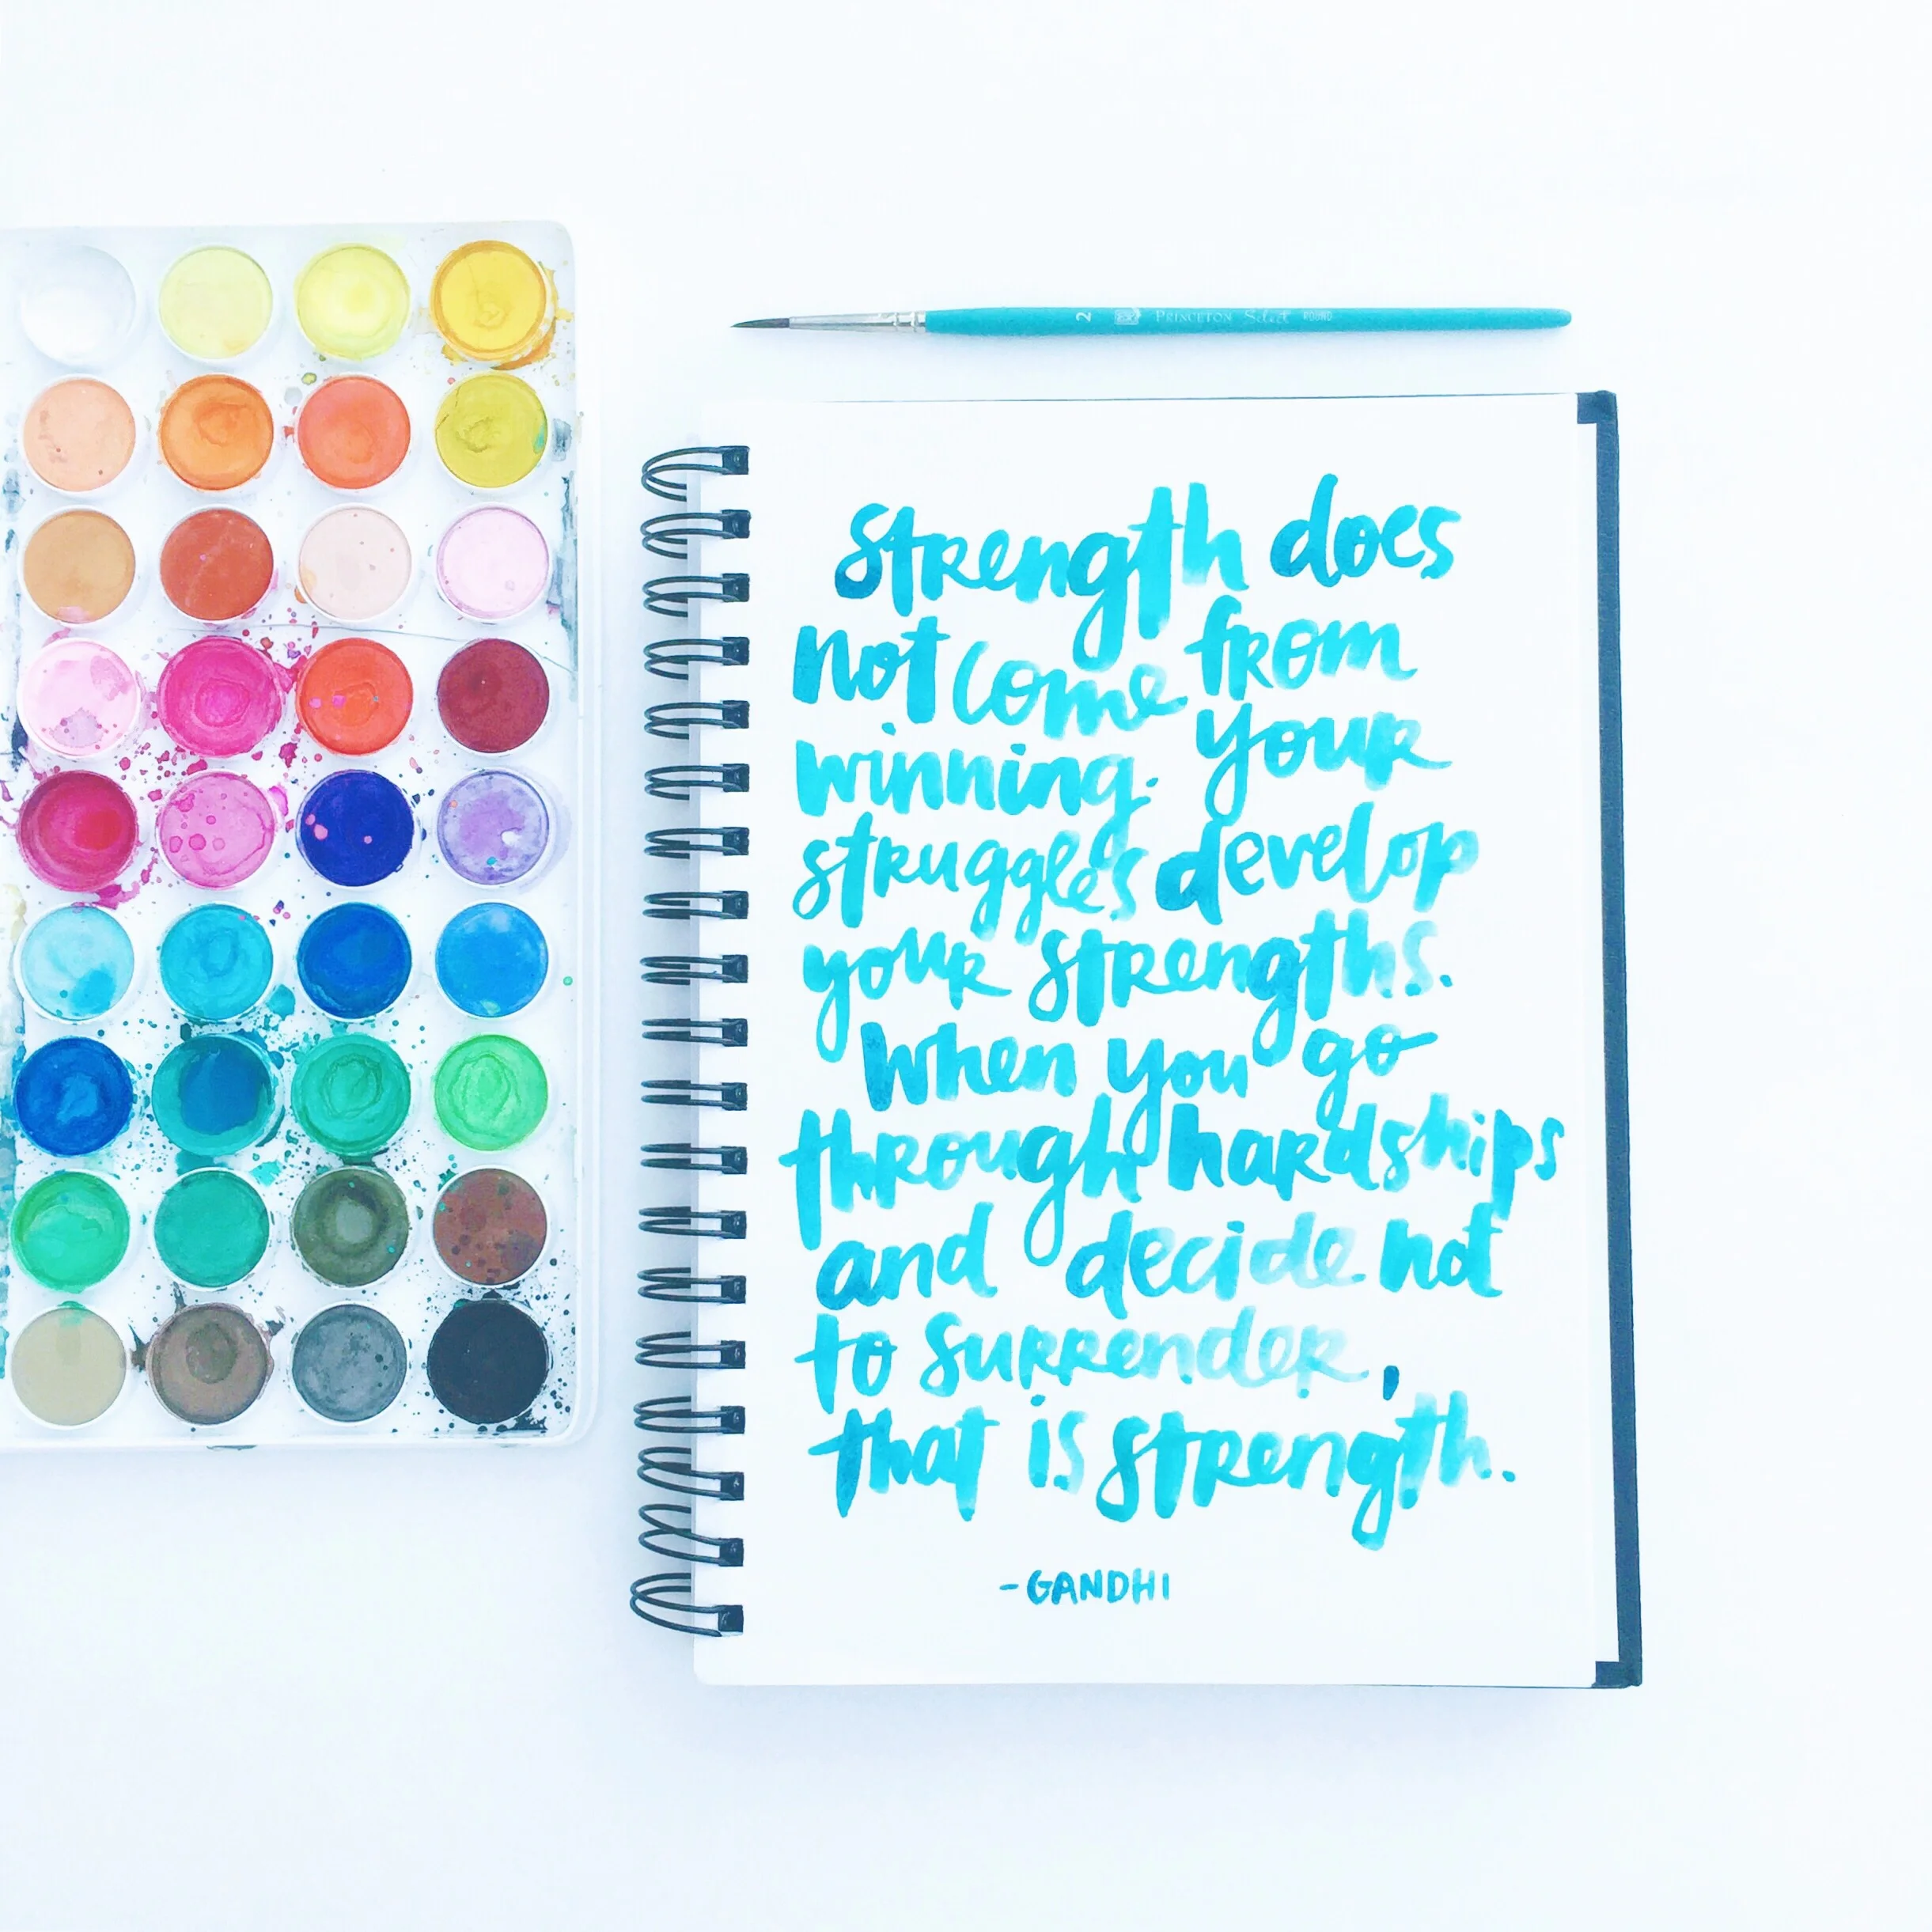 2 PRINCETON Select ROUND
Strength does
not come from
winning. Your
struggles develop
your strengths.
When you go
through hardships
and decide not
to surrender,
that is strength.
-GANDHI